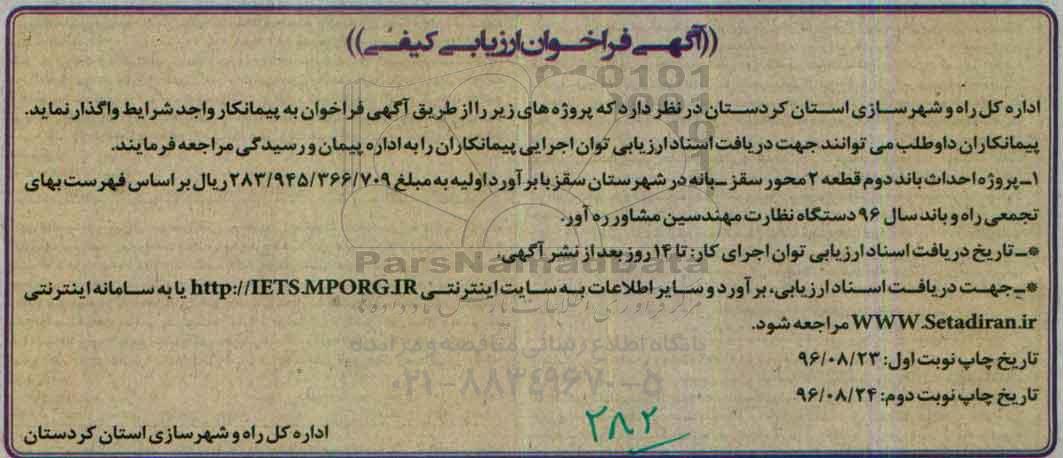 ((آگهی فراخوان ارزیابی کیفی))
اداره کل راه و شهرسازی استان کردستان در نظر دارد که پروژه های زیر را از طریق آگهی فراخوان به پیمانکار واجد شرایط واگذار نماید.
پیمانکاران داوطلب می توانند جهت دریافت اسناد ارزیابی توان اجرایی پیمانکاران را به اداره پیمان و رسیدگی مراجعه فرمایند.
۱ـ پروژه احداث باند دوم قطعه ۲ محور سقز ـ بانه در شهرستان سقز با برآورد اولیه به مبلغ ۲۸۳/۹۴۵/۳۶۶/۷۰۹ ریال بر اساس فهرست بهای
تجمعی راه و باند سال ۹۶ دستگاه نظارت مهندسین مشاور ره آور.
*ـ تاریخ دریافت اسناد ارزیابی توان اجرای کار: تا ۱۴ روز بعد از نشر آگهی.
*ـ جهت دریافت اسناد ارزیابی، برآورد و سایر اطلاعات به سایت اینترنتی http://IETS.MPORG.IR یا به سامانه اینترنتی
WWW.Setadiran.ir مراجعه شود.
تاریخ چاپ نوبت اول: ۹۶/۰۸/۲۳
تاریخ چاپ نوبت دوم: ۹۶/۰۸/۲۴
اداره کل راه و شهرسازی استان کردستان
۲۸۲
ParsNamadData
پایگاه اطلاع رسانی مناقصه و مزایده
۰۲۱-۸۸۳۴۹۶۷۰-۵